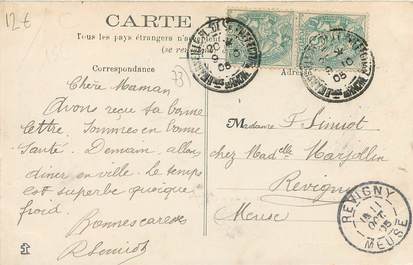 12€
CARTE
Tous les pays étrangers n'acceptent
(se ren
Correspondance
Adresse
77
Chère Maman
Avons reçu ta bonne
lettre. Sommes en bonne
santé. Demain allons
diner en ville. Le temps
est superbe quoique
froid.
Bonnes caresses
Madame F. Simiot
chez Mad elle Marjollin
Revigny
Meuse
REVIGNY
11
OCT
05
MEUSE